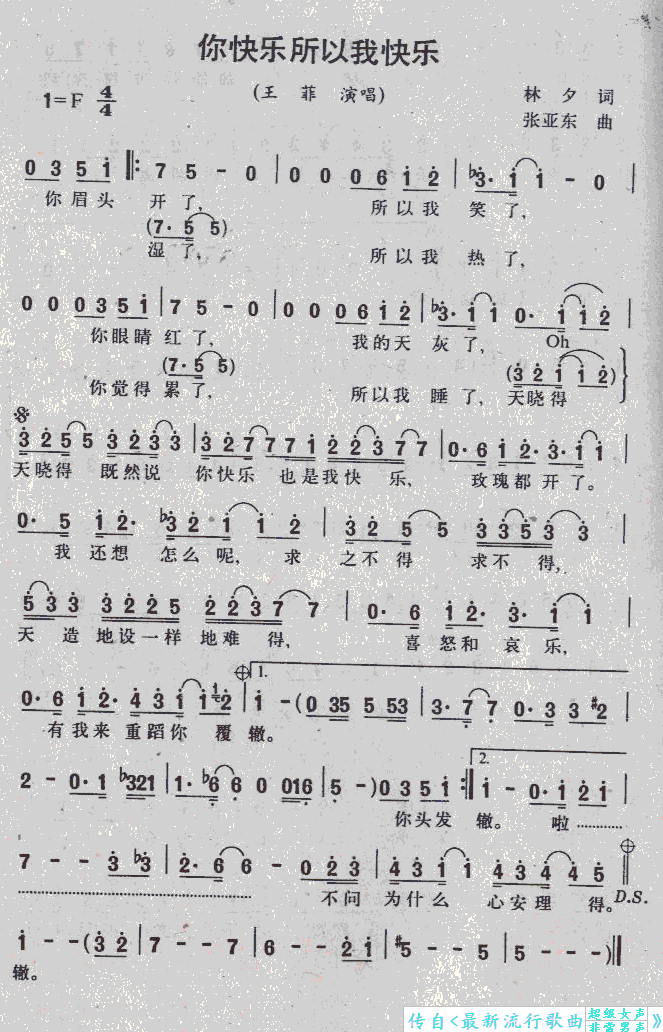 你快乐所以我快乐
(王 菲 演唱)
1=F 4/4
林 夕 词
张亚东 曲
0 3 5 i ‖: 7 5 - 0 | 0 0 0 6 i 2 | b3· i i - 0 |
你眉头 开了, 所以我 笑了,
(7· 5 5)
湿了, 所以我 热了,
0 0 0 3 5 i | 7 5 - 0 | 0 0 0 6 i 2 | b3· i i 0· i i 2 |
你眼睛红了, 我的天 灰了, Oh
(7· 5 5) (3 2 i i 2)
你觉得累了, 所以我 睡了, 天晓得
3 2 5 5 3 2 3 3 | 3 2 7 7 7 i 2 2 3 7 7 | 0· 6 i 2· 3· i i |
天晓得 既然说 你快乐 也是我快 乐, 玫瑰都开了。
0· 5 i 2· b3 2 i i 2 | 3 2 5 5 3 3 5 3 3 |
我 还想 怎么呢, 求 之不得 求不得,
5 3 3 3 2 2 5 2 2 3 7 7 | 0· 6 i 2· 3· i i |
天 造 地设一样 地难 得, 喜怒和哀乐,
1.
0· 6 i 2· 4 3 i i 2 | i - (0 35 5 53 | 3· 7 7 0· 3 3 #2 |
有我来 重蹈你 覆 辙。
2 - 0· 1 b321 | 1· b6 6 0 016 | 5 - ) 0 3 5 i :‖ 2. i - 0· i 2 i |
你头发 辙。 啦…………
7 - - 3 b3 | 2· 6 6 - 0 2 3 | 4 3 i i 4 3 4 4 5 ‖
不问 为什么 心安理 得。D.S.
i - - (3 2 | 7 - - 7 | 6 - - 2 i | #5 - - 5 | 5 - - - )‖
辙。
传自<最新流行歌曲 超级女声 非常男声》